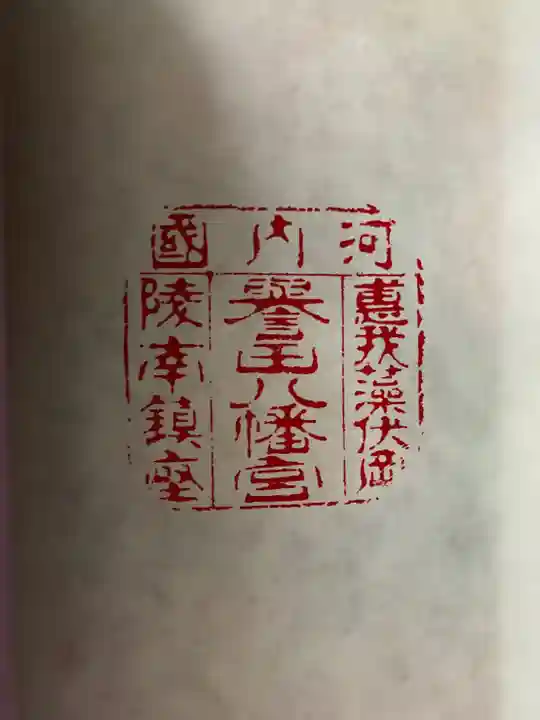 河内國
惠我藻伏岡
譽田八幡宮
陵南鎮座